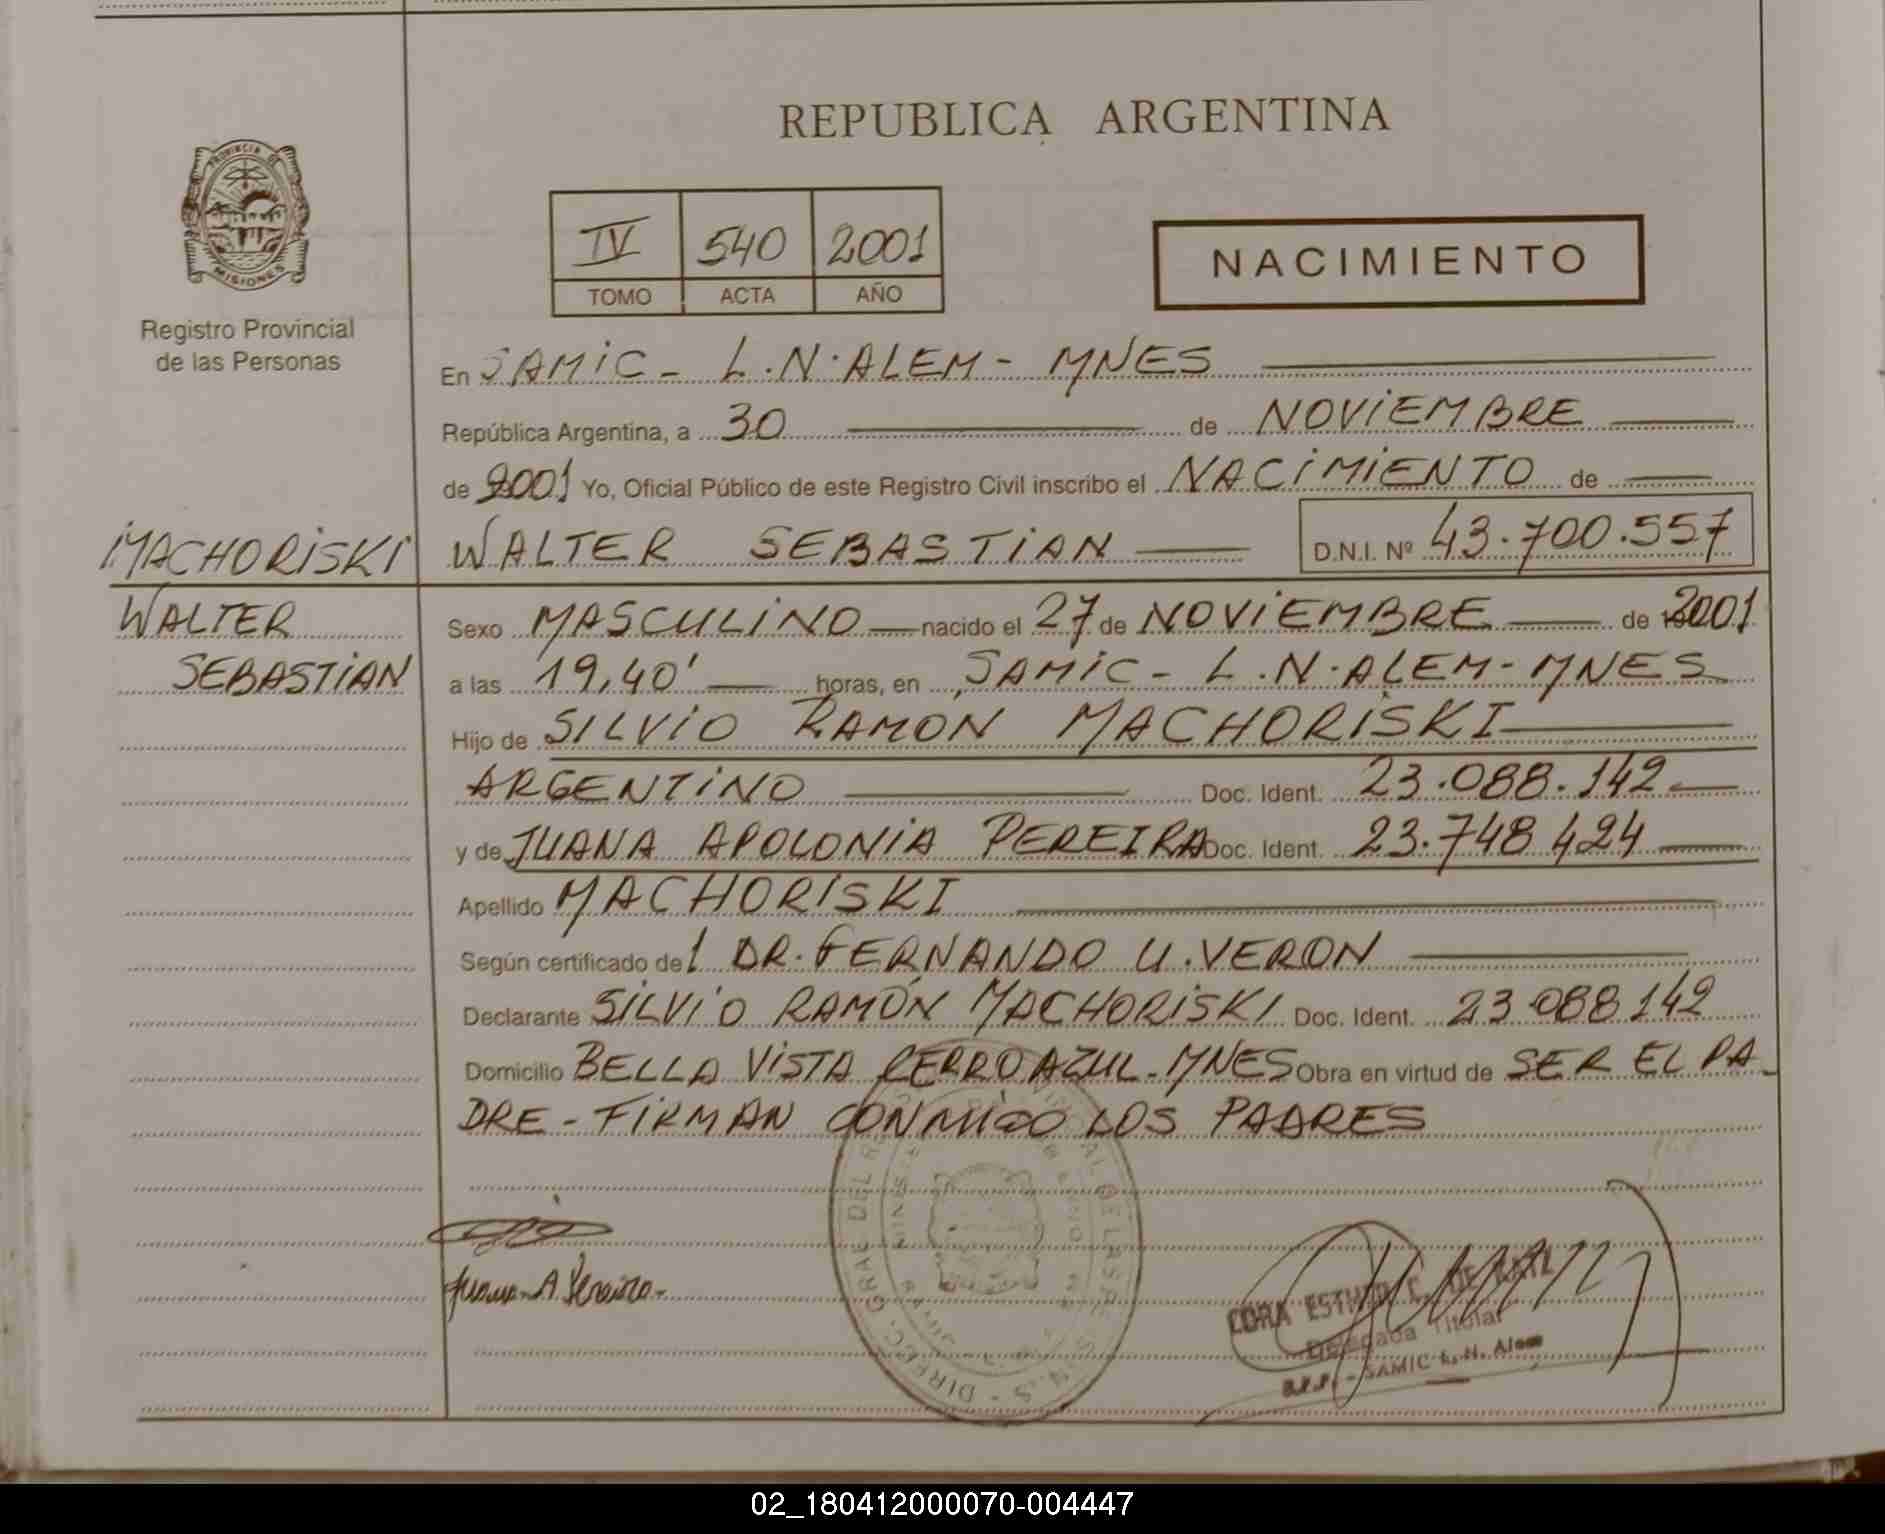 REPUBLICA ARGENTINA
PROVINCIA DE
MISIONES
Registro Provincial
de las Personas
IV 540 2001
TOMO ACTA AÑO
NACIMIENTO
En SAMIC - L.N. ALEM - MNES
República Argentina, a 30 de NOVIEMBRE
de 2001 Yo, Oficial Público de este Registro Civil inscribo el NACIMIENTO de
MACHORISKI
WALTER SEBASTIAN D.N.I. Nº 43.700.557
WALTER
SEBASTIAN
Sexo MASCULINO nacido el 27 de NOVIEMBRE de 2001
a las 19,40' horas, en SAMIC - L.N. ALEM - MNES
Hijo de SILVIO RAMON MACHORISKI
ARGENTINO Doc. Ident. 23.088.142
y de JUANA APOLONIA PEREIRA Doc. Ident. 23.748 424
Apellido MACHORISKI
Según certificado del DR. FERNANDO U. VERON
Declarante SILVIO RAMÓN MACHORISKI Doc. Ident. 23 088 142
Domicilio BELLA VISTA CERRO AZUL - MNES Obra en virtud de SER EL PA-
DRE - FIRMAN CONMIGO LOS PADRES
Juana A Pereira
CORA ESTHER C. DE KATZ
Delegada Titular
R.P.P. - SAMIC L. N. Alem
02_180412000070-004447